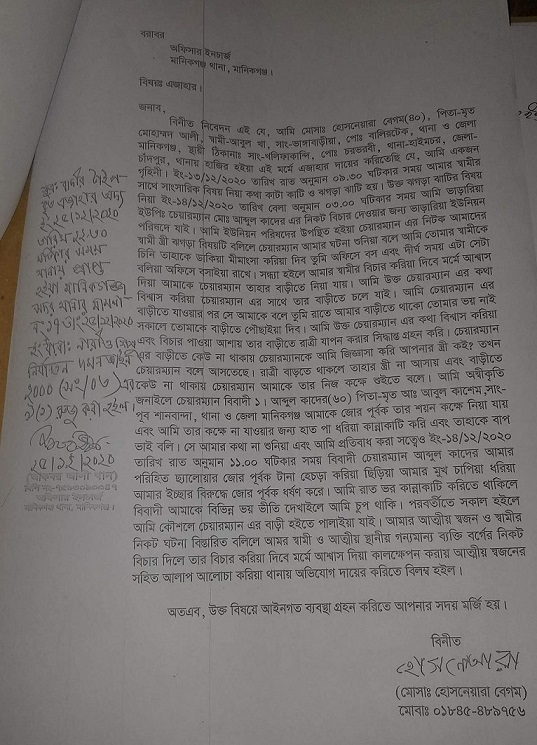 বরাবর
অফিসার ইনচার্জ
মানিকগঞ্জ থানা, মানিকগঞ্জ।
বিষয়ঃ এজাহার।
জনাব,
বিনীত নিবেদন এই যে, আমি মোসাঃ হোসনেয়ারা বেগম(৪০), পিতা-মৃত
মোহাম্মদ আলী, স্বামী-আবুল খা, সাং-ভাঙ্গাবাড়ীয়া, পোঃ বালিরটেক, থানা ও জেলা
মানিকগঞ্জ, স্থায়ী ঠিকানাঃ সাং-খলিফাকান্দি, পোঃ চরভরবী, থানা-হাইমচর, জেলা-
চাঁদপুর, থানায় হাজির হইয়া এই মর্মে এজাহার দায়ের করিতেছি যে, আমি একজন
গৃহিনী। ইং-১৩/১২/২০২০ তারিখ রাত অনুমান ০৯.৩০ ঘটিকার সময় আমার স্বামীর
সাথে সাংসারিক বিষয় নিয়া কথা কাটা কাটি ও ঝগড়া ঝাটি হয়। উক্ত ঝগড়া ঝাটির বিষয়
নিয়া ইং-১৪/১২/২০২০ তারিখ বেলা অনুমান ০৩.০০ ঘটিকার সময় আমি ভাড়ারিয়া
ইউপিঃ চেয়ারম্যান মোঃ আব্দুল কাদের এর নিকট বিচার দেওয়ার জন্য ভাড়ারিয়া ইউনিয়ন
পরিষদে যাই। আমি ইউনিয়ন পরিষদের উপস্থিত হইয়া চেয়ারম্যান এর নিটক আমাদের
স্বামী স্ত্রী ঝগড়া বিষয়টি বলিলে চেয়ারম্যান আমার ঘটনা শুনিয়া বলে আমি তোমার স্বামীকে
চিনি তাহাকে ডাকিয়া মীমাংসা করিয়া দিব তুমি অফিসে বস এবং দীর্ঘ সময় এটা সেটা
বলিয়া অফিসে বসাইয়া রাখে। সন্ধ্যা হইলে আমার স্বামীর বিচার করিয়া দিবে মর্মে আশ্বাস
দিয়া আমাকে চেয়ারম্যান তাহার বাড়ীতে নিয়া যায়। আমি উক্ত চেয়ারম্যান এর কথা
বিশ্বাস করিয়া চেয়ারম্যান এর সাথে তার বাড়ীতে চলে যাই। আমি চেয়ারম্যান এর
বাড়ীতে যাওয়ার পর সে আমাকে বলে তুমি রাতে আমার বাড়ীতে থাকো তোমার ভয় নাই
সকালে তোমাকে বাড়ীতে পৌছাইয়া দিব। আমি উক্ত চেয়ারম্যান এর কথা বিশ্বাস করিয়া
এবং বিচার পাওয়া আশায় তার বাড়ীতে রাত্রী যাপন করার সিদ্ধান্ত গ্রহন করি। চেয়ারম্যান
এর বাড়ীতে কেউ না থাকায় চেয়ারম্যানকে আমি জিজ্ঞাসা করি আপনার স্ত্রী কই? তখন
চেয়ারম্যান বলে আসতেছে। রাত্রী বাড়তে থাকলে তাহার স্ত্রী না আসায় এবং বাড়ীতে
কেউ না থাকায় চেয়ারম্যান আমাকে তার নিজ কক্ষে শুইতে বলে। আমি অস্বীকৃতি
জনাইলে চেয়ারম্যান বিবাদী ১। আব্দুল কাদের(৬০) পিতা-মৃত আঃ আবুল কাশেম,সাং-
পূর্ব শানবান্দা, থানা ও জেলা মানিকগঞ্জ আমাকে জোর পূর্বক তার শয়ন কক্ষে নিয়া যায়
এবং আমি তার কক্ষে না যাওয়ার জন্য হাত পা ধরিয়া কান্নাকাটি করি এবং তাহাকে বাপ
ভাই বলি। সে আমার কথা না শুনিয়া এবং আমি প্রতিবাধ করা সত্ত্বেও ইং-১৪/১২/২০২০
তারিখ রাত অনুমান ১১.০০ ঘটিকার সময় বিবাদী চেয়ারম্যান আব্দুল কাদের আমার
পরিহিত ছ্যালোয়ার জোর পূর্বক টানা হেচড়া করিয়া ছিড়িয়া আমার মুখ চাপিয়া ধরিয়া
আমার ইচ্ছার বিরুদ্ধে জোর পূর্বক ধর্ষণ করে। আমি রাত ভর কান্নাকাটি করিতে থাকিলে
বিবাদী আমাকে বিভিন্ন ভয় ভীতি দেখাইলে আমি চুপ থাকি। পরবর্তীতে সকাল হইলে
আমি কৌশলে চেয়ারম্যান এর বাড়ী হইতে পালাইয়া যাই। আমার আত্মীয় স্বজন ও স্বামীর
নিকট ঘটনা বিস্তারিত বলিলে আমর স্বামী ও আত্মীয় স্থানীয় গন্যমান্য ব্যক্তি বর্গের নিকট
বিচার দিলে তার বিচার করিয়া দিবে মর্মে আশ্বাস দিয়া কালক্ষেপন করায় আত্মীয় স্বজনের
সহিত আলাপ আলোচা করিয়া থানায় অভিযোগ দায়ের করিতে বিলম্ব হইল।
অতএব, উক্ত বিষয়ে আইনগত ব্যবস্থা গ্রহন করিতে আপনার সদয় মর্জি হয়।
বিনীত
হোসনেআরা
(মোসাঃ হোসনেয়ারা বেগম)
মোবাঃ ০১৮৪৫-৪৮৯৭৫৬
২৫/১২/২০২০
২০০০ (সং/০৩) এর
৯(১) রুজু করা হইল।
২৫/১২/২০২০